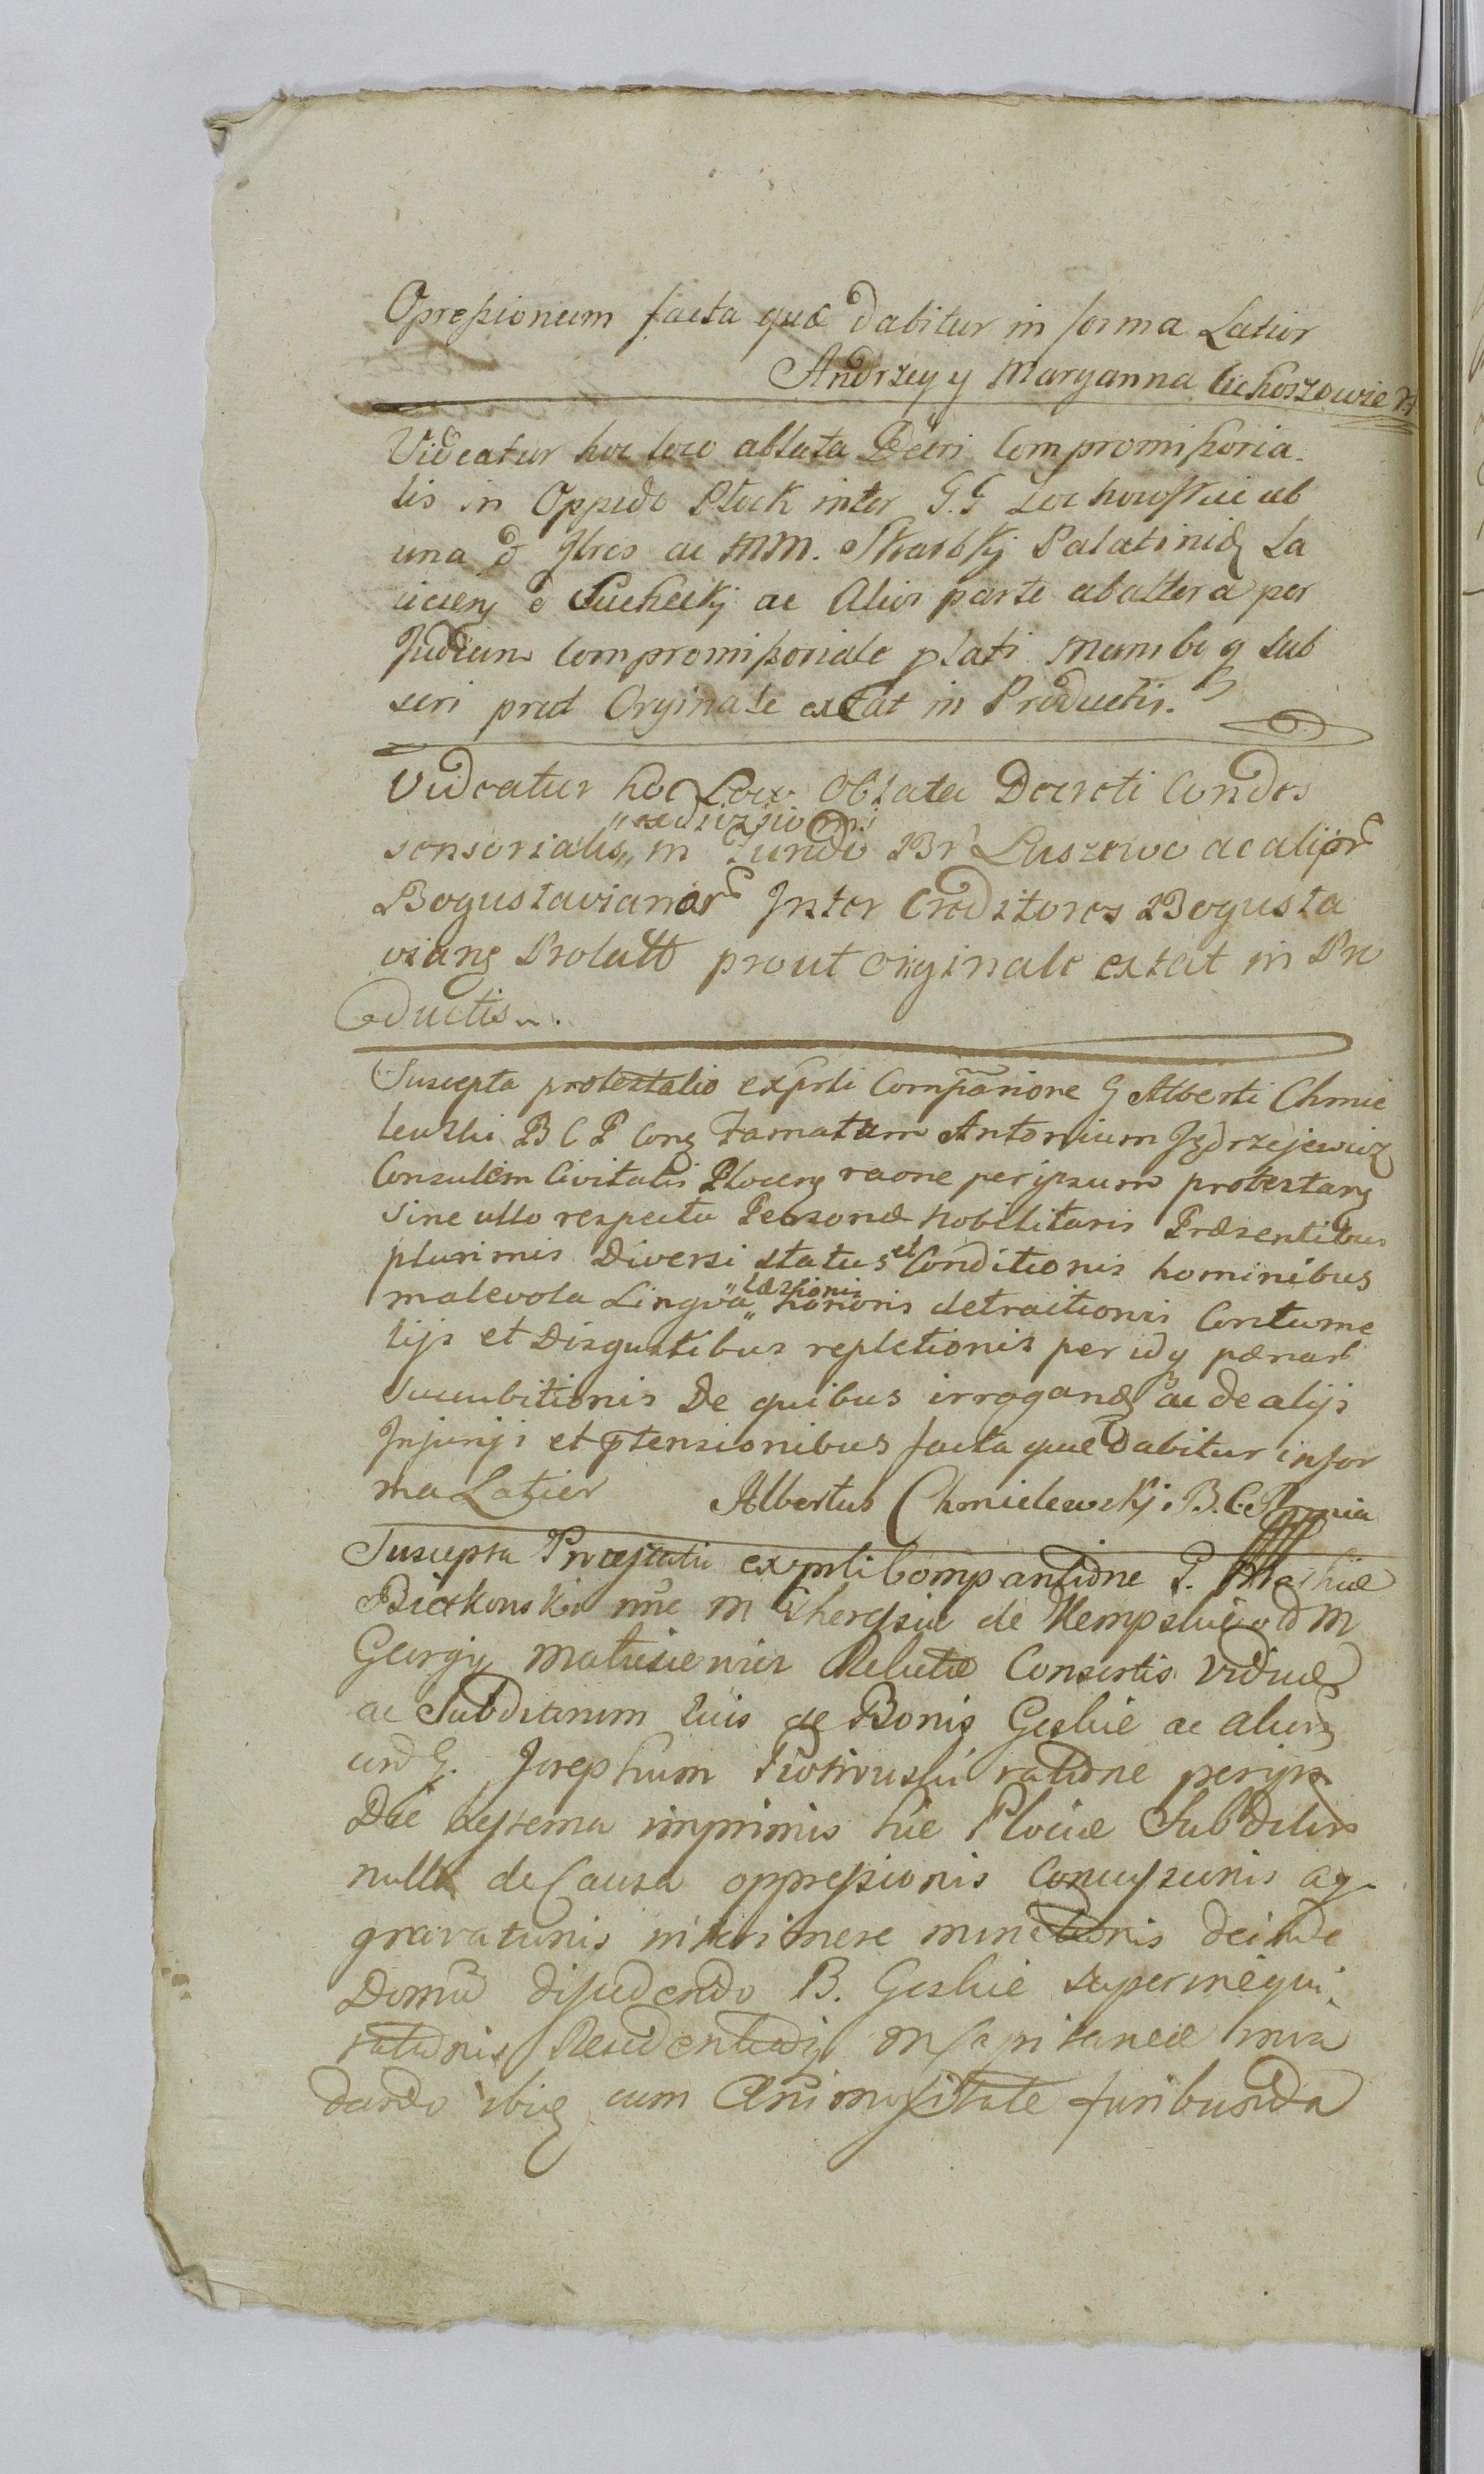 Opreſsionum facta quæ dabitur in forma Latior
Andrzey y Maryanna Cichoszowie
Videatur hoc loco ablata Decri Compromiſsoria-
lis in Oppido Plock inter G.G Zochowſkie ab
una & Jllres ac MM. Skarbkj Palatinid La
& Sucheckj ac Alior parte ab altera per
Judicium compromiſsoriale plati Manibq sub
scri prout Orginale extat in Productis.
Videatur hoc Loco Oblata Decreti Condes
sensorialis „exdivisionis„ in Fundo Br Luszewo ac alior
Bogustavianor Jnter Creditores Bogusta
viang Prolatt prout originale extat in Pro
ductis.
Suscepta protestatio exprti Comparione G Alberti Chmie
lewski B C P Cong Famatum Antonium Jędrzejewicz
Consulem Civitatis Ploceng raone per ipsum protestang
sine ullo respectu Personæ nobilitaris Præsentibus
plurimis Diversi status et Conditionis hominibus
malevola Lingva „læssionis„ honoris detractionis Contume
lijs et Disgustibus repletionis per idq pænar
succubitionis De quibus irrogand ac de alijs
Jnjurijs et ptensionibus facta quæ dabitur in for
ma Latior Albertus Chmielewskj B.C.P. mia
Suscepta Protestatio exprti Compantione P.
nunc M de Kempski od M
Georgij Relictæ Consortis Viduæ
ac Subditorum suis de Bonis Geslie ac alior
Josephum Piotrowski ratione per ips
Die hesterna imprimis hic Plociæ Subditos
nulla de Causa oppreſsionis Concuſsionis ag-
gravationis interimere minationis deinde
Domũ diſcedendo B. Geslie superinequi-
tationis
dando ibiq cum Animoſitate furibunda